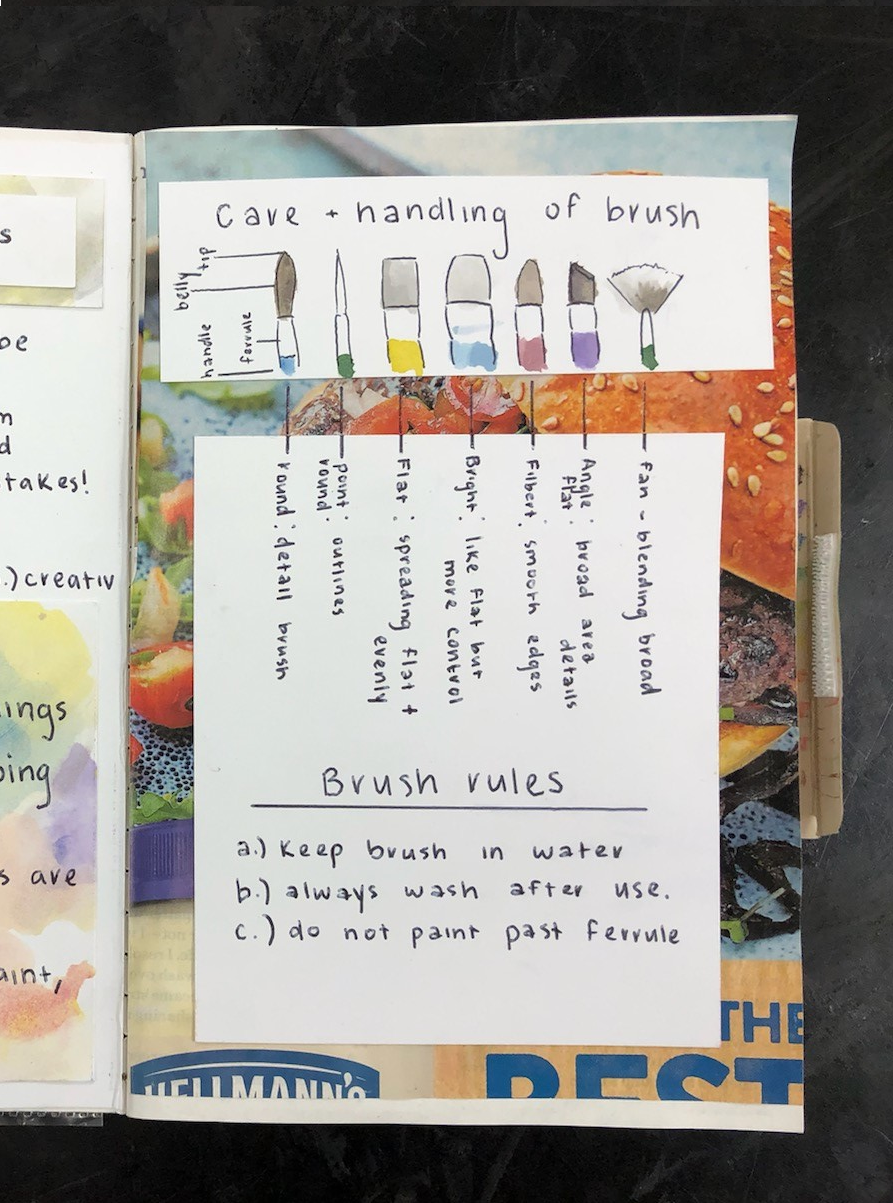 s
be
m
d
takes!
.) creativ
ings
ping
s are
aint,
Care + handling of brush
tip
belly
handle
ferrule
round: detail brush
point: outlines
round
Flat: spreading flat +
evenly
Bright: like flat but
more control
Filbert: smooth edges
Angle: broad area
flat: details
fan - blending broad
Brush rules
a.) Keep brush in water
b.) always wash after use.
c.) do not paint past ferrule
HELLMANN'S
THE
BEST